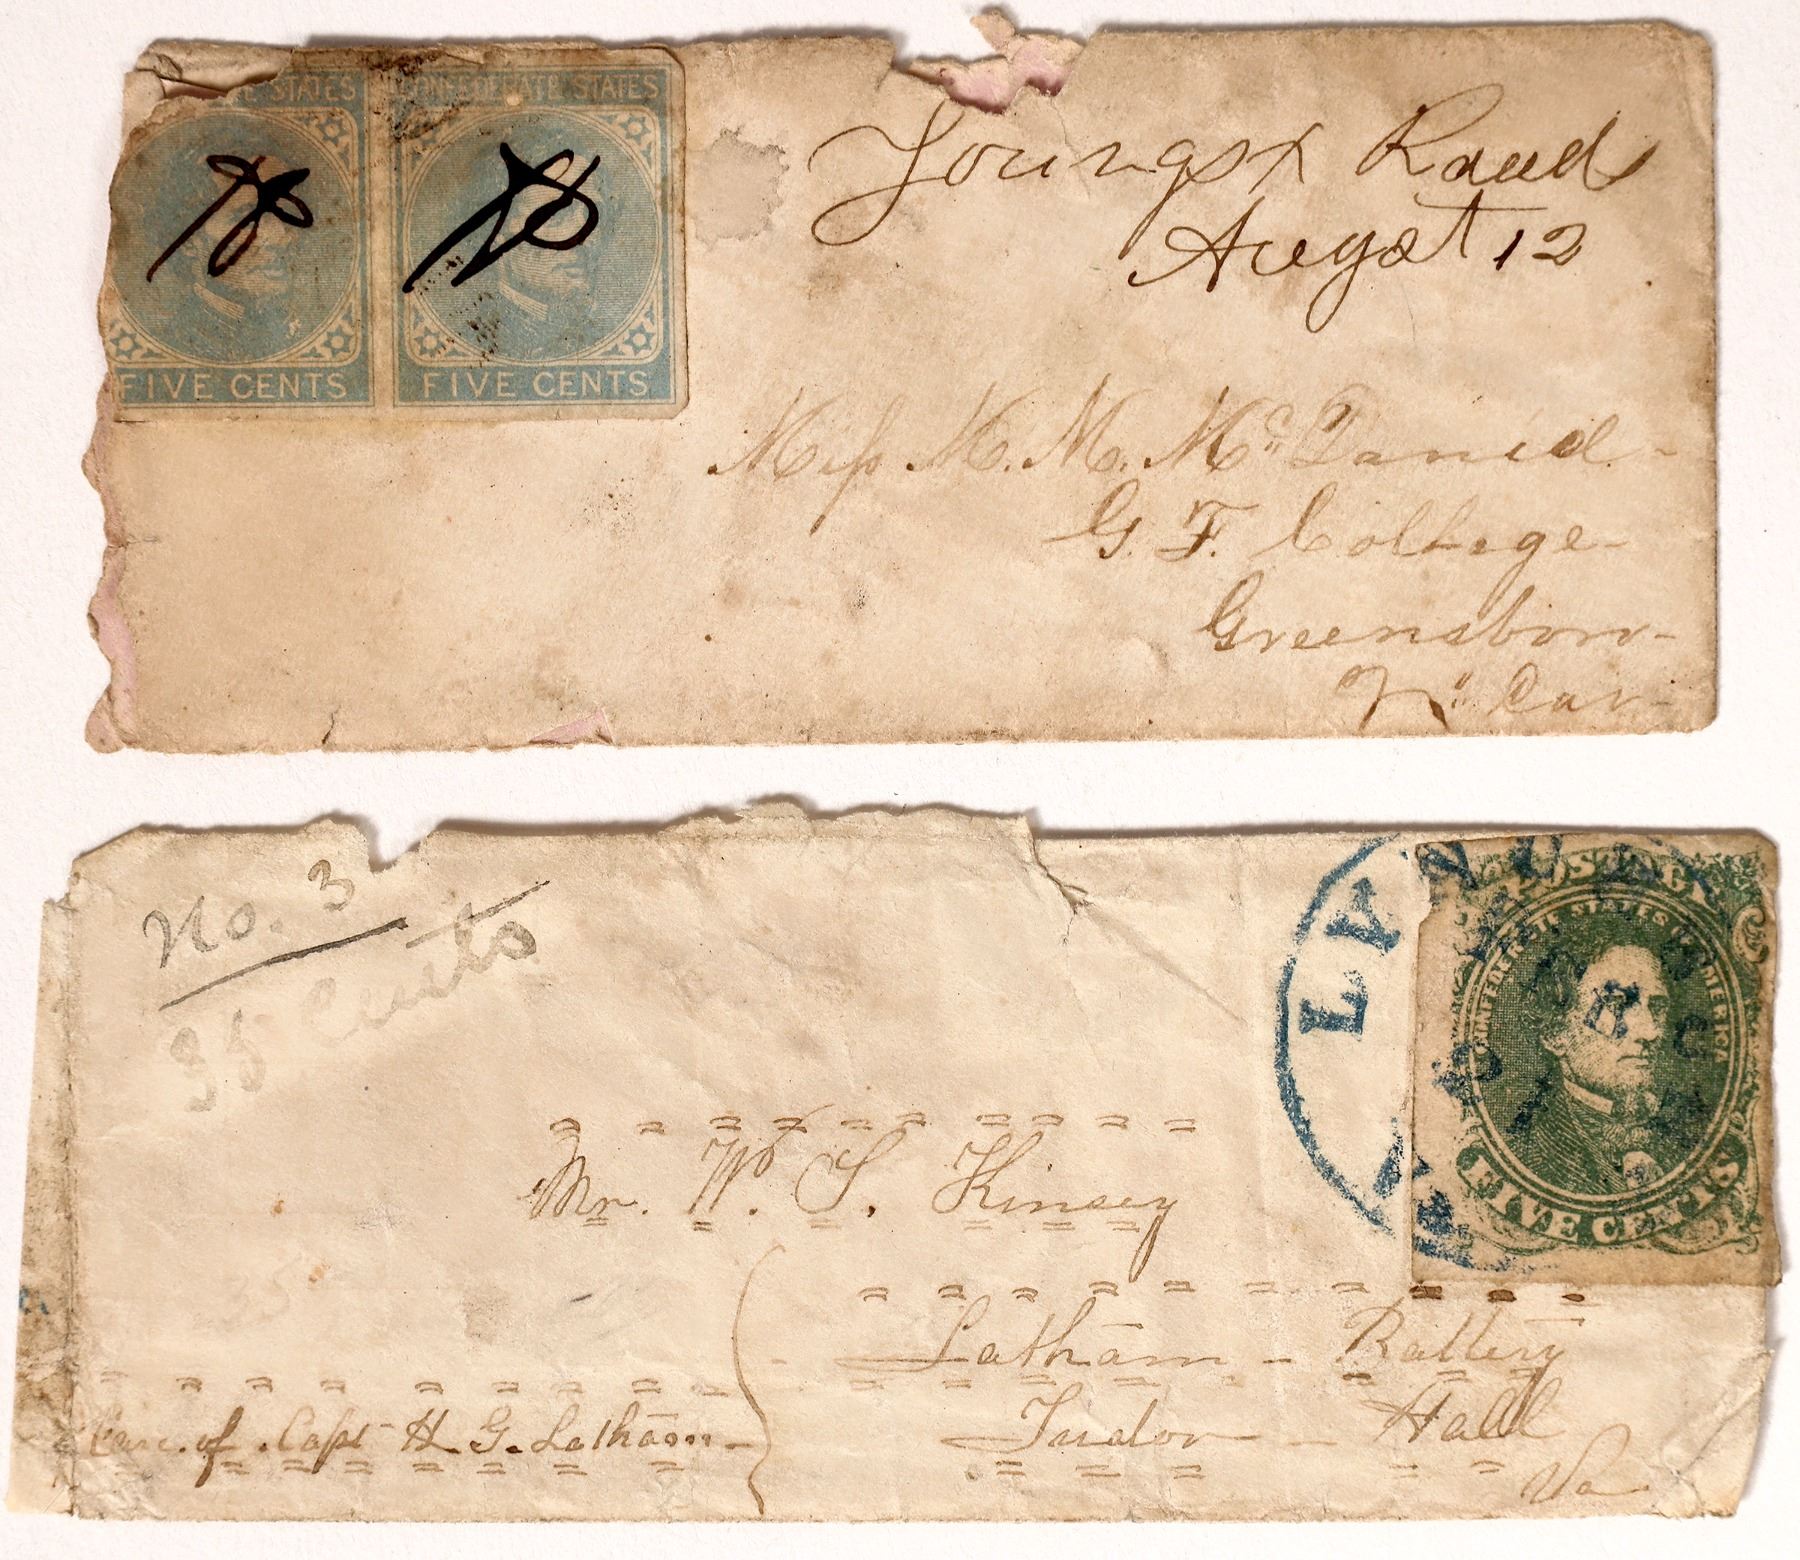 E STATES
CONFEDERATE STATES
FIVE CENTS
FIVE CENTS
Youngsx Roads
Augst 12
Miss M. M. McDaniel
G. F. College
Greensboro
No. Car
No. 3
35 Cents
LYNC
POSTAGE
CONFEDERATE STATES OF AMERICA
FIVE CENTS
Mr. W. S. Kinsey
Latham Battery
Tudor Hall
Va
Care of Capt H. G. Latham